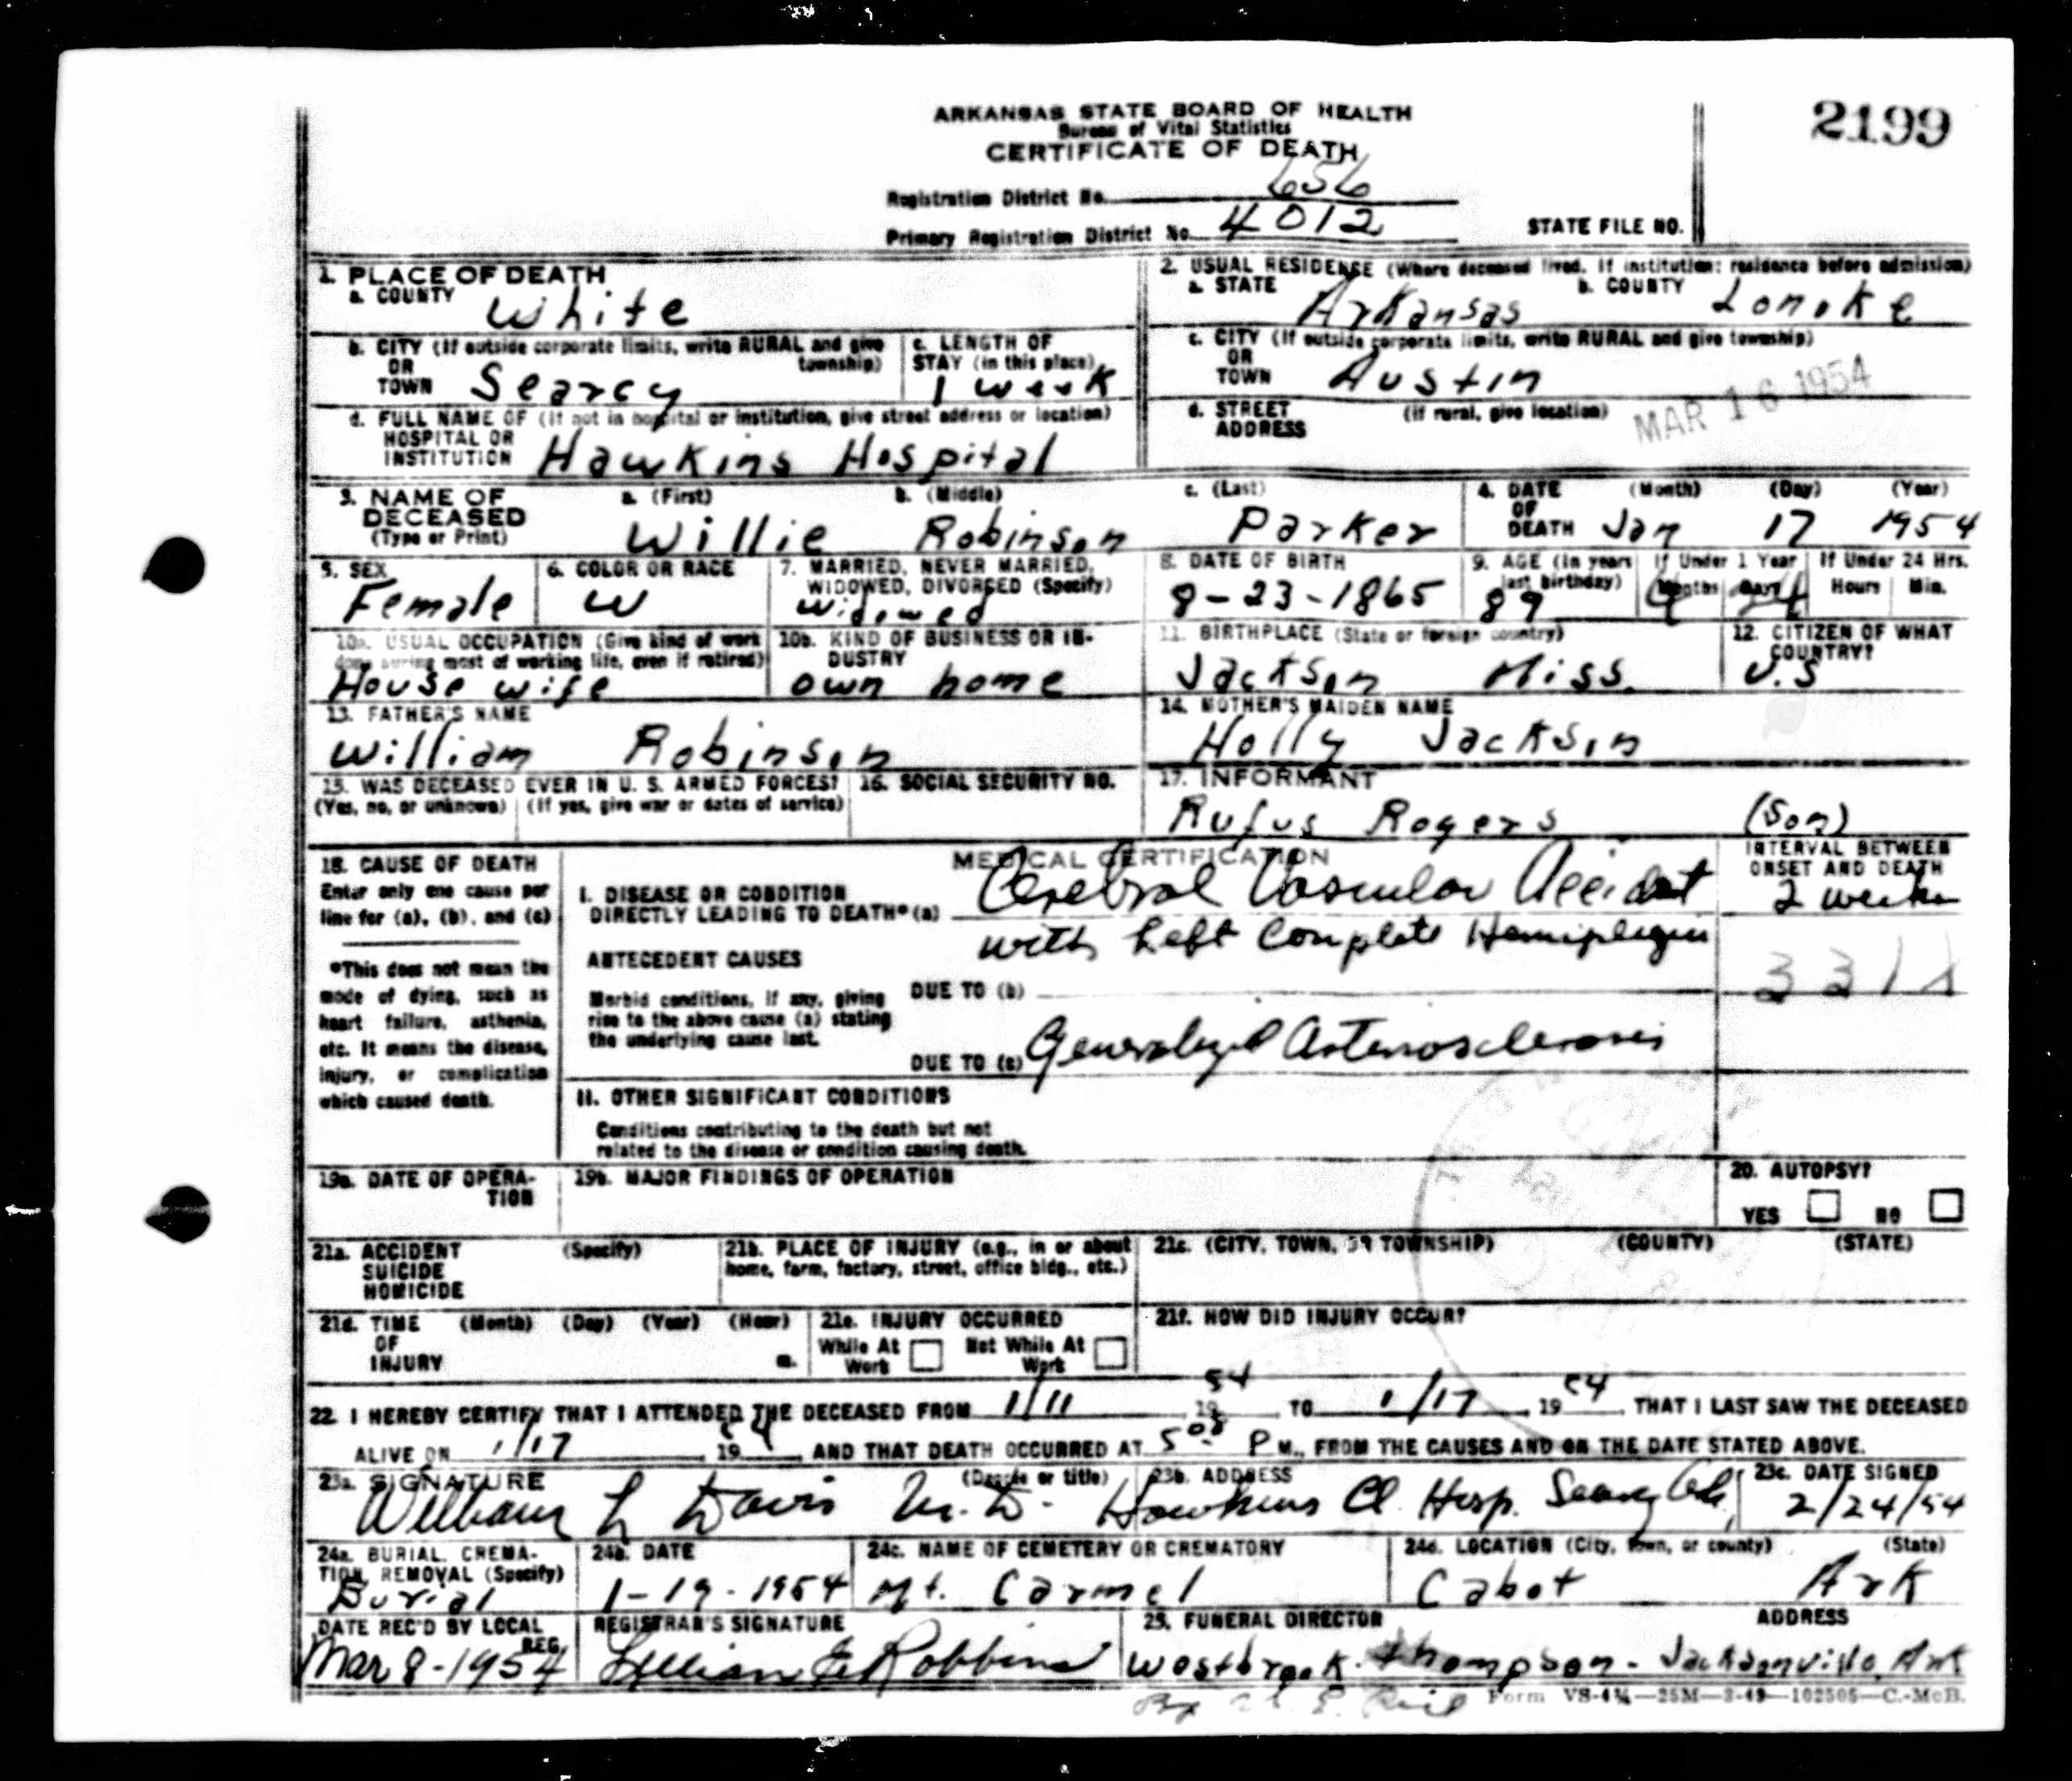 ARKANSAS STATE BOARD OF HEALTH
Bureau of Vital Statistics
CERTIFICATE OF DEATH
2199
Registration District No. 656
Primary Registration District No. 4012
STATE FILE NO.
1. PLACE OF DEATH
a. COUNTY White
2. USUAL RESIDENCE (Where deceased lived. If institution: residence before admission)
a. STATE Arkansas b. COUNTY Lonoke
b. CITY (If outside corporate limits, write RURAL and give township)
OR TOWN Searcy
c. LENGTH OF STAY (in this place) 1 week
c. CITY (If outside corporate limits, write RURAL and give township)
OR TOWN Austin
MAR 16 1954
d. FULL NAME OF (If not in hospital or institution, give street address or location)
HOSPITAL OR INSTITUTION Hawkins Hospital
d. STREET ADDRESS (If rural, give location)
3. NAME OF DECEASED (Type or Print)
a. (First) b. (Middle) c. (Last)
Willie Robinson Parker
4. DATE OF DEATH (Month) (Day) (Year)
Jan 17 1954
5. SEX Female
6. COLOR OR RACE W
7. MARRIED, NEVER MARRIED, WIDOWED, DIVORCED (Specify)
Widowed
8. DATE OF BIRTH
8-23-1865
9. AGE (In years last birthday) 89
If Under 1 Year Months Days
If Under 24 Hrs. Hours Min.
10a. USUAL OCCUPATION (Give kind of work done during most of working life, even if retired)
House wife
10b. KIND OF BUSINESS OR INDUSTRY
own home
11. BIRTHPLACE (State or foreign country)
Jackson Miss.
12. CITIZEN OF WHAT COUNTRY?
U.S
13. FATHER'S NAME
William Robinson
14. MOTHER'S MAIDEN NAME
Holly Jackson
15. WAS DECEASED EVER IN U. S. ARMED FORCES?
(Yes, no, or unknown) (If yes, give war or dates of service)
16. SOCIAL SECURITY NO.
17. INFORMANT
Rufus Rogers (Son)
18. CAUSE OF DEATH
Enter only one cause per line for (a), (b), and (c)
*This does not mean the mode of dying, such as heart failure, asthenia, etc. It means the disease, injury, or complication which caused death.
MEDICAL CERTIFICATION
I. DISEASE OR CONDITION
DIRECTLY LEADING TO DEATH* (a) Cerebral Vascular Accident
with Left Complete Hemiplegia
INTERVAL BETWEEN ONSET AND DEATH
2 weeks
331X
ANTECEDENT CAUSES
Morbid conditions, if any, giving rise to the above cause (a) stating the underlying cause last.
DUE TO (b)
DUE TO (c) Generalized Arteriosclerosis
II. OTHER SIGNIFICANT CONDITIONS
Conditions contributing to the death but not related to the disease or condition causing death.
19a. DATE OF OPERATION
19b. MAJOR FINDINGS OF OPERATION
20. AUTOPSY?
YES NO
21a. ACCIDENT SUICIDE HOMICIDE (Specify)
21b. PLACE OF INJURY (e.g., in or about home, farm, factory, street, office bldg., etc.)
21c. (CITY, TOWN, OR TOWNSHIP) (COUNTY) (STATE)
21d. TIME OF INJURY (Month) (Day) (Year) (Hour) m.
21e. INJURY OCCURRED
While At Work Not While At Work
21f. HOW DID INJURY OCCUR?
22. I HEREBY CERTIFY THAT I ATTENDED THE DECEASED FROM 1/11, 1954, TO 1/17, 1954, THAT I LAST SAW THE DECEASED
ALIVE ON 1/17, 1954, AND THAT DEATH OCCURRED AT 5:00 P M., FROM THE CAUSES AND ON THE DATE STATED ABOVE.
23a. SIGNATURE (Degree or title)
William L Davis M.D.
23b. ADDRESS
Hawkins Cl. Hosp. Searcy Ark.
23c. DATE SIGNED
2/24/54
24a. BURIAL, CREMATION, REMOVAL (Specify)
Burial
24b. DATE
1-19-1954
24c. NAME OF CEMETERY OR CREMATORY
Mt. Carmel
24d. LOCATION (City, town, or county) (State)
Cabot Ark
DATE REC'D BY LOCAL REG.
Mar 8-1954
REGISTRAR'S SIGNATURE
Lillian E Robbins
25. FUNERAL DIRECTOR ADDRESS
Westbrook-Thompson-Jacksonville, Ark
By
Form VS-4¼—25M—3-49—102505—C.-McB.